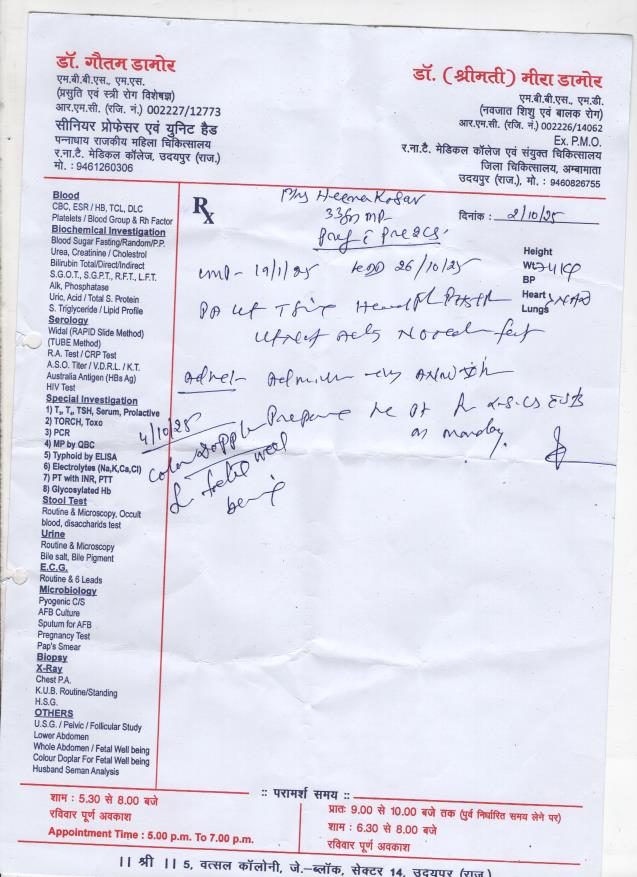 डॉ. गौतम डामोर
एम.बी.बी.एस., एम.एस.
(प्रसुति एवं स्त्री रोग विशेषज्ञ)
आर.एम.सी. (रजि. नं.) 002227/12773
सीनियर प्रोफेसर एवं युनिट हैड
पन्नाधाय राजकीय महिला चिकित्सालय
र.ना.टै. मेडिकल कॉलेज, उदयपुर (राज.)
मो. : 9461260306
डॉ. (श्रीमती) मीरा डामोर
एम.बी.बी.एस., एम.डी.
(नवजात शिशु एवं बालक रोग)
आर.एम.सी. (रजि. नं.) 002226/14062
Ex. P.M.O.
र.ना.टै. मेडिकल कॉलेज एवं संयुक्त चिकित्सालय
जिला चिकित्सालय, अम्बामाता
उदयपुर (राज.), मो. : 9460826755
Blood
CBC, ESR / HB, TCL, DLC
Platelets / Blood Group & Rh Factor
Biochemical Investigation
Blood Sugar Fasting/Random/P.P.
Urea, Creatinine / Cholestrol
Bilirubin Total/Direct/Indirect
S.G.O.T., S.G.P.T., R.F.T., L.F.T.
Alk, Phosphatase
Uric, Acid / Total S. Protein
S. Triglyceride / Lipid Profile
Serology
Widal (RAPID Slide Method)
(TUBE Method)
R.A. Test / CRP Test
A.S.O. Titer / V.D.R.L. / K.T.
Australia Antigen (HBs Ag)
HIV Test
Special Investigation
1) T₃, T₄, TSH, Serum, Prolactive
2) TORCH, Toxo
3) PCR
4) MP by QBC
5) Typhoid by ELISA
6) Electrolytes (Na,K,Ca,Cl)
7) PT with INR, PTT
8) Glycosylated Hb
Stool Test
Routine & Microscopy, Occult
blood, disaccharids test
Urine
Routine & Microscopy
Bile salt, Bile Pigment
E.C.G.
Routine & 6 Leads
Microbiology
Pyogenic C/S
AFB Culture
Sputum for AFB
Pregnancy Test
Pap's Smear
Biopsy
X-Ray
Chest P.A.
K.U.B. Routine/Standing
H.S.G.
OTHERS
U.S.G. / Pelvic / Follicular Study
Lower Abdomen
Whole Abdomen / Fetal Well being
Colour Doplar For Fetal Well being
Husband Seman Analysis
Rx
Heena Kosar
दिनांक : 2/10/25
LMP - 19/1/25 EDD 26/10/25
Height
Wt.
BP
Heart
Lungs
Prepare
on monday.
4/10/25
Color Doppler
fetal well
being
:: परामर्श समय ::
शाम : 5.30 से 8.00 बजे
रविवार पूर्ण अवकाश
Appointment Time : 5.00 p.m. To 7.00 p.m.
प्रातः 9.00 से 10.00 बजे तक (पुर्व निर्धारित समय लेने पर)
शाम : 6.30 से 8.00
रविवार पूर्ण अवकाश
।। श्री ।। 5, वत्सल कॉलोनी, जे.–ब्लॉक, सेक्टर 14, उदयपुर (राज.)